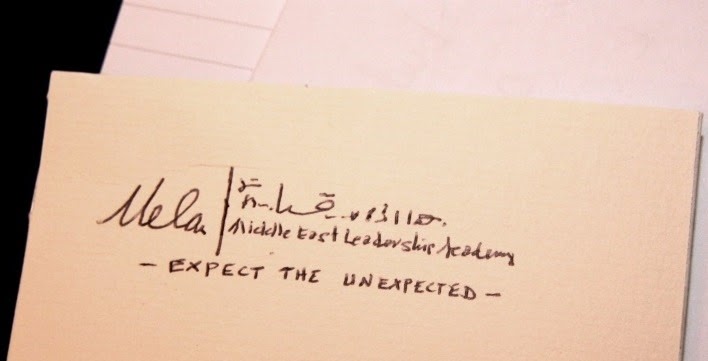 Mela
Middle East Leadership Academy
- EXPECT THE UNEXPECTED -